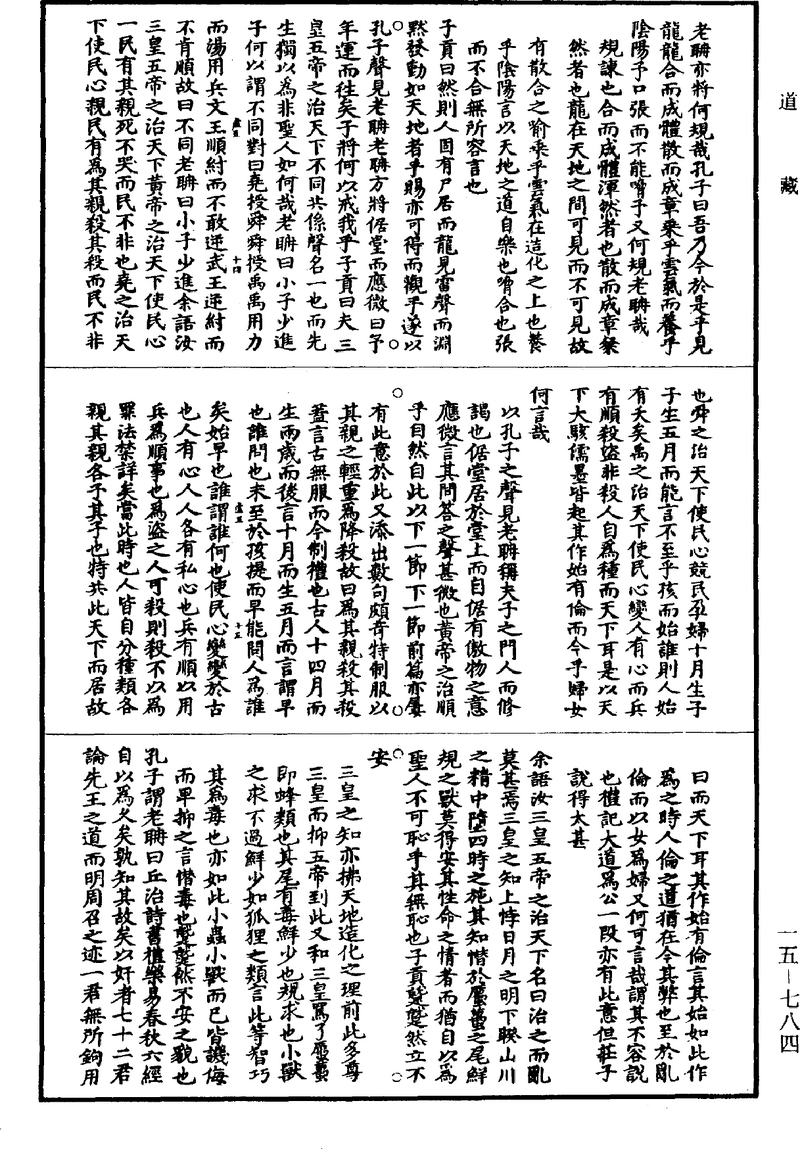 道藏
老聃亦將何規哉孔子曰吾乃今於是乎見
龍龍合而成體散而成章乘乎雲氣而養乎
陰陽予口張而不能嗋予又何規老聃哉
規諫也合而成體渾然者也散而成章粲
然者也龍在天地之間可見而不可見故
有散合之喻乘乎雲氣在造化之上也養
乎陰陽言以天地之道自樂也嗋合也張
而不合無所容言也
子貢曰然則人固有尸居而龍見雷聲而淵
默發動如天地者乎賜亦可得而觀乎遂以
孔子聲見老聃老聃方將倨堂而應微曰予
年運而往矣子將何以戒我乎子貢曰夫三
皇五帝之治天下不同其係聲名一也而先
生獨以為非聖人如何哉老聃曰小子少進
子何以謂不同對曰堯授舜舜授禹禹用力
而湯用兵文王順紂而不敢逆武王逆紂而
不肯順故曰不同老聃曰小子少進余語汝
三皇五帝之治天下黃帝之治天下使民心
一民有其親死不哭而民不非也堯之治天
下使民心親民有為其親殺其殺而民不非
也舜之治天下使民心競民孕婦十月生子
子生五月而能言不至乎孩而始誰則人始
有夭矣禹之治天下使民心變人有心而兵
有順殺盜非殺人自為種而天下耳是以天
下大駭儒墨皆起其作始有倫而今乎婦女
何言哉
以孔子之聲見老聃稱夫子之門人而修
謁也倨堂居於堂上而自倨有傲物之意
應微言其問荅之聲甚微也黃帝之治順
乎自然自此以下一節下一節前篇亦屢
有此意於此又添出數句頗奇特制服以
其親之輕重為降殺故曰為其親殺其殺
蓋言古無服而今制禮也古人十四月而
生兩歲而後言十月而生五月而言謂早
也誰問也未至於孩提而早能問人為誰
矣始早也誰謂誰何也使民心變變於古
也人有心人人各有私心也兵有順以用
兵為順事也為盜之人可殺則殺不以為
罪法禁詳矣當此時也人皆自分種類各
親其親各子其子也特共此天下而居故
曰而天下耳其作始有倫言其始如此作
為之時人倫之道猶在今其弊也至於亂
倫而以女為婦又何可言哉謂其不容說
也禮記大道為公一段亦有此意但莊子
說得太甚
余語汝三皇五帝之治天下名曰治之而亂
莫甚焉三皇之知上悖日月之明下睽山川
之精中墮四時之施其知憯於蠣蠆之尾鮮
規之獸莫得安其性命之情者而猶自以為
聖人不可恥乎其無恥也子貢蹵蹵然立不
安
三皇之知亦拂天地造化之理前此多尊
三皇而抑五帝到此又和三皇罵了蠣蠆
即蜂類也其尾有毒鮮少也規求也小獸
之求不過鮮少如狐狸之類言此等智巧
其為毒也亦如此小蟲小獸而已皆譏侮
而卑抑之言憯毒也蹵蹵然不安之貌也
孔子謂老聃曰丘治詩書禮樂易春秋六經
自以為久矣孰知其故矣以奸者七十二君
論先王之道而明周召之迹一君無所鉤用
一五－七八四